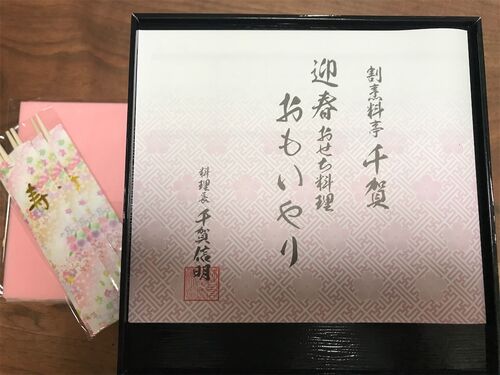 割烹料亭 千賀
迎春おせち料理
おもいやり
料理長 千賀信明
寿